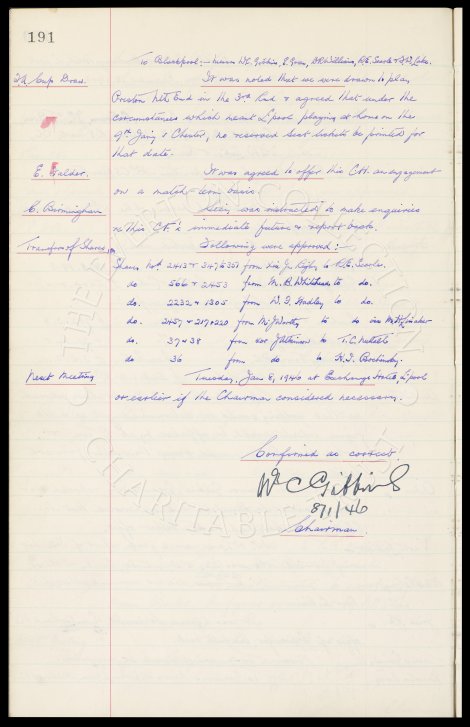 191
To Blackpool; - Messrs W.C. Gibbins, E. Green, A.R. Williams, R.E. Searle & Lake.
F.A. Cup Draw. It was noted that we were drawn to play
Preston Nth End in the 3rd Rnd & agreed that under the
circumstances which meant L'pool playing at home on the
9th Jan'y & Chester, no reserved seat tickets be printed for
that date.
E. Falder. It was agreed to offer this CH an engagement
on a match - term basis.
C. Birmingham Sec'y was instructed to make enquiries
re this 'CF's' immediate future & report back.
Transfer of Shares. Following were approved :-
Shares Nos 2413 & from Rigby to R.E. Searle.
do 566 & 2453 from M.B. Whitehead to do.
do. 2232 & 1305 from Hadley to do.
do. 2457 & from Worthy to do via
do. 37 & 38 from Atkinson to T.C. Nuttall
do 36 from do to
Next Meeting Tuesday, Jan 8, 1946 at Exchange Hotel, L'pool
or earlier if the Chairman considered necessary.
Confirmed as correct.
Wm C Gibbins
8/1/46
Chairman.
THE EVERTON COLLECTION
CHARITABLE